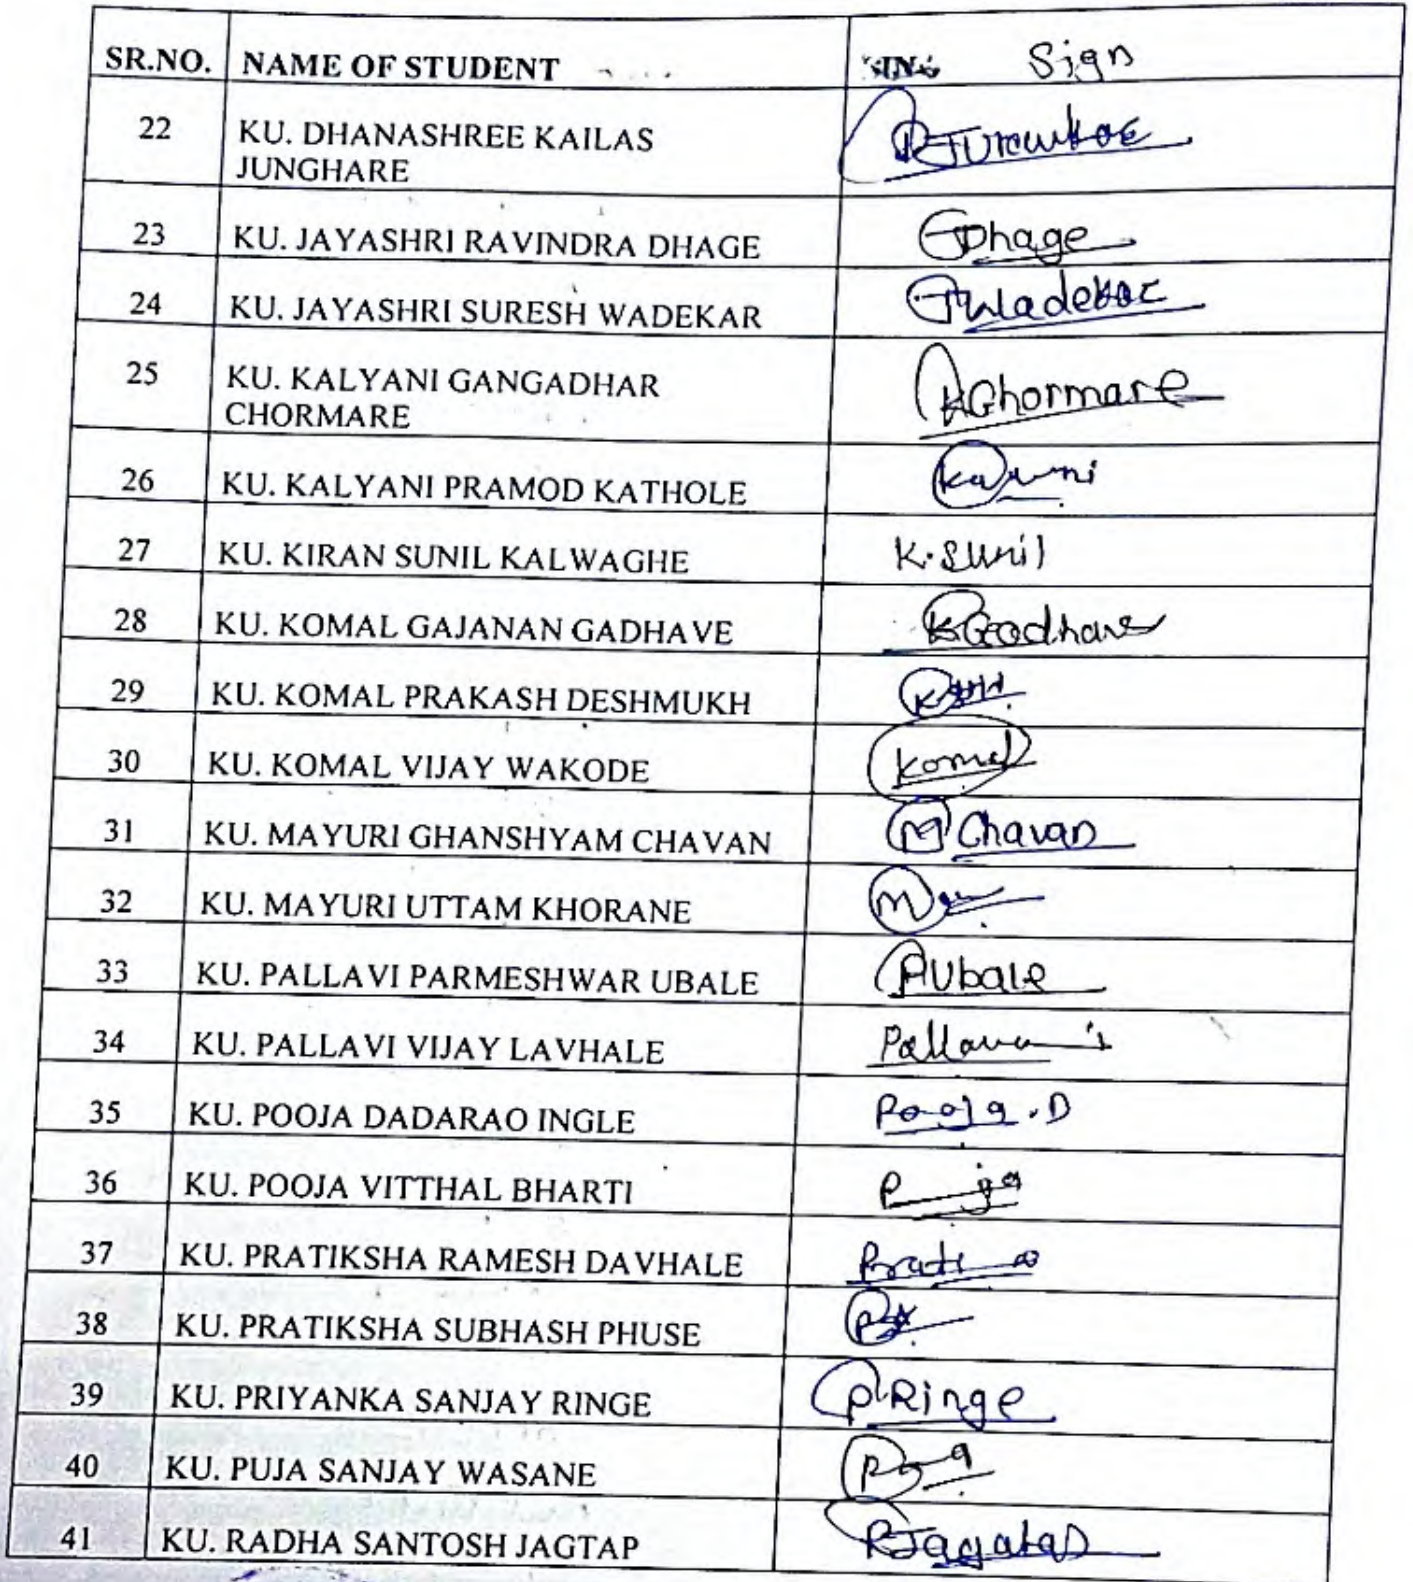 SR.NO. NAME OF STUDENT SING Sign
22 KU. DHANASHREE KAILAS
JUNGHARE
23 KU. JAYASHRI RAVINDRA DHAGE JDhage
24 KU. JAYASHRI SURESH WADEKAR Wadekar
25 KU. KALYANI GANGADHAR
CHORMARE KGhormare
26 KU. KALYANI PRAMOD KATHOLE
27 KU. KIRAN SUNIL KALWAGHE K.Sunil
28 KU. KOMAL GAJANAN GADHAVE KGadhave
29 KU. KOMAL PRAKASH DESHMUKH
30 KU. KOMAL VIJAY WAKODE Komal
31 KU. MAYURI GHANSHYAM CHAVAN M Chavan
32 KU. MAYURI UTTAM KHORANE
33 KU. PALLAVI PARMESHWAR UBALE PUbale
34 KU. PALLAVI VIJAY LAVHALE
35 KU. POOJA DADARAO INGLE Pooja.D
36 KU. POOJA VITTHAL BHARTI
37 KU. PRATIKSHA RAMESH DAVHALE
38 KU. PRATIKSHA SUBHASH PHUSE
39 KU. PRIYANKA SANJAY RINGE PRinge
40 KU. PUJA SANJAY WASANE
41 KU. RADHA SANTOSH JAGTAP RJagatap